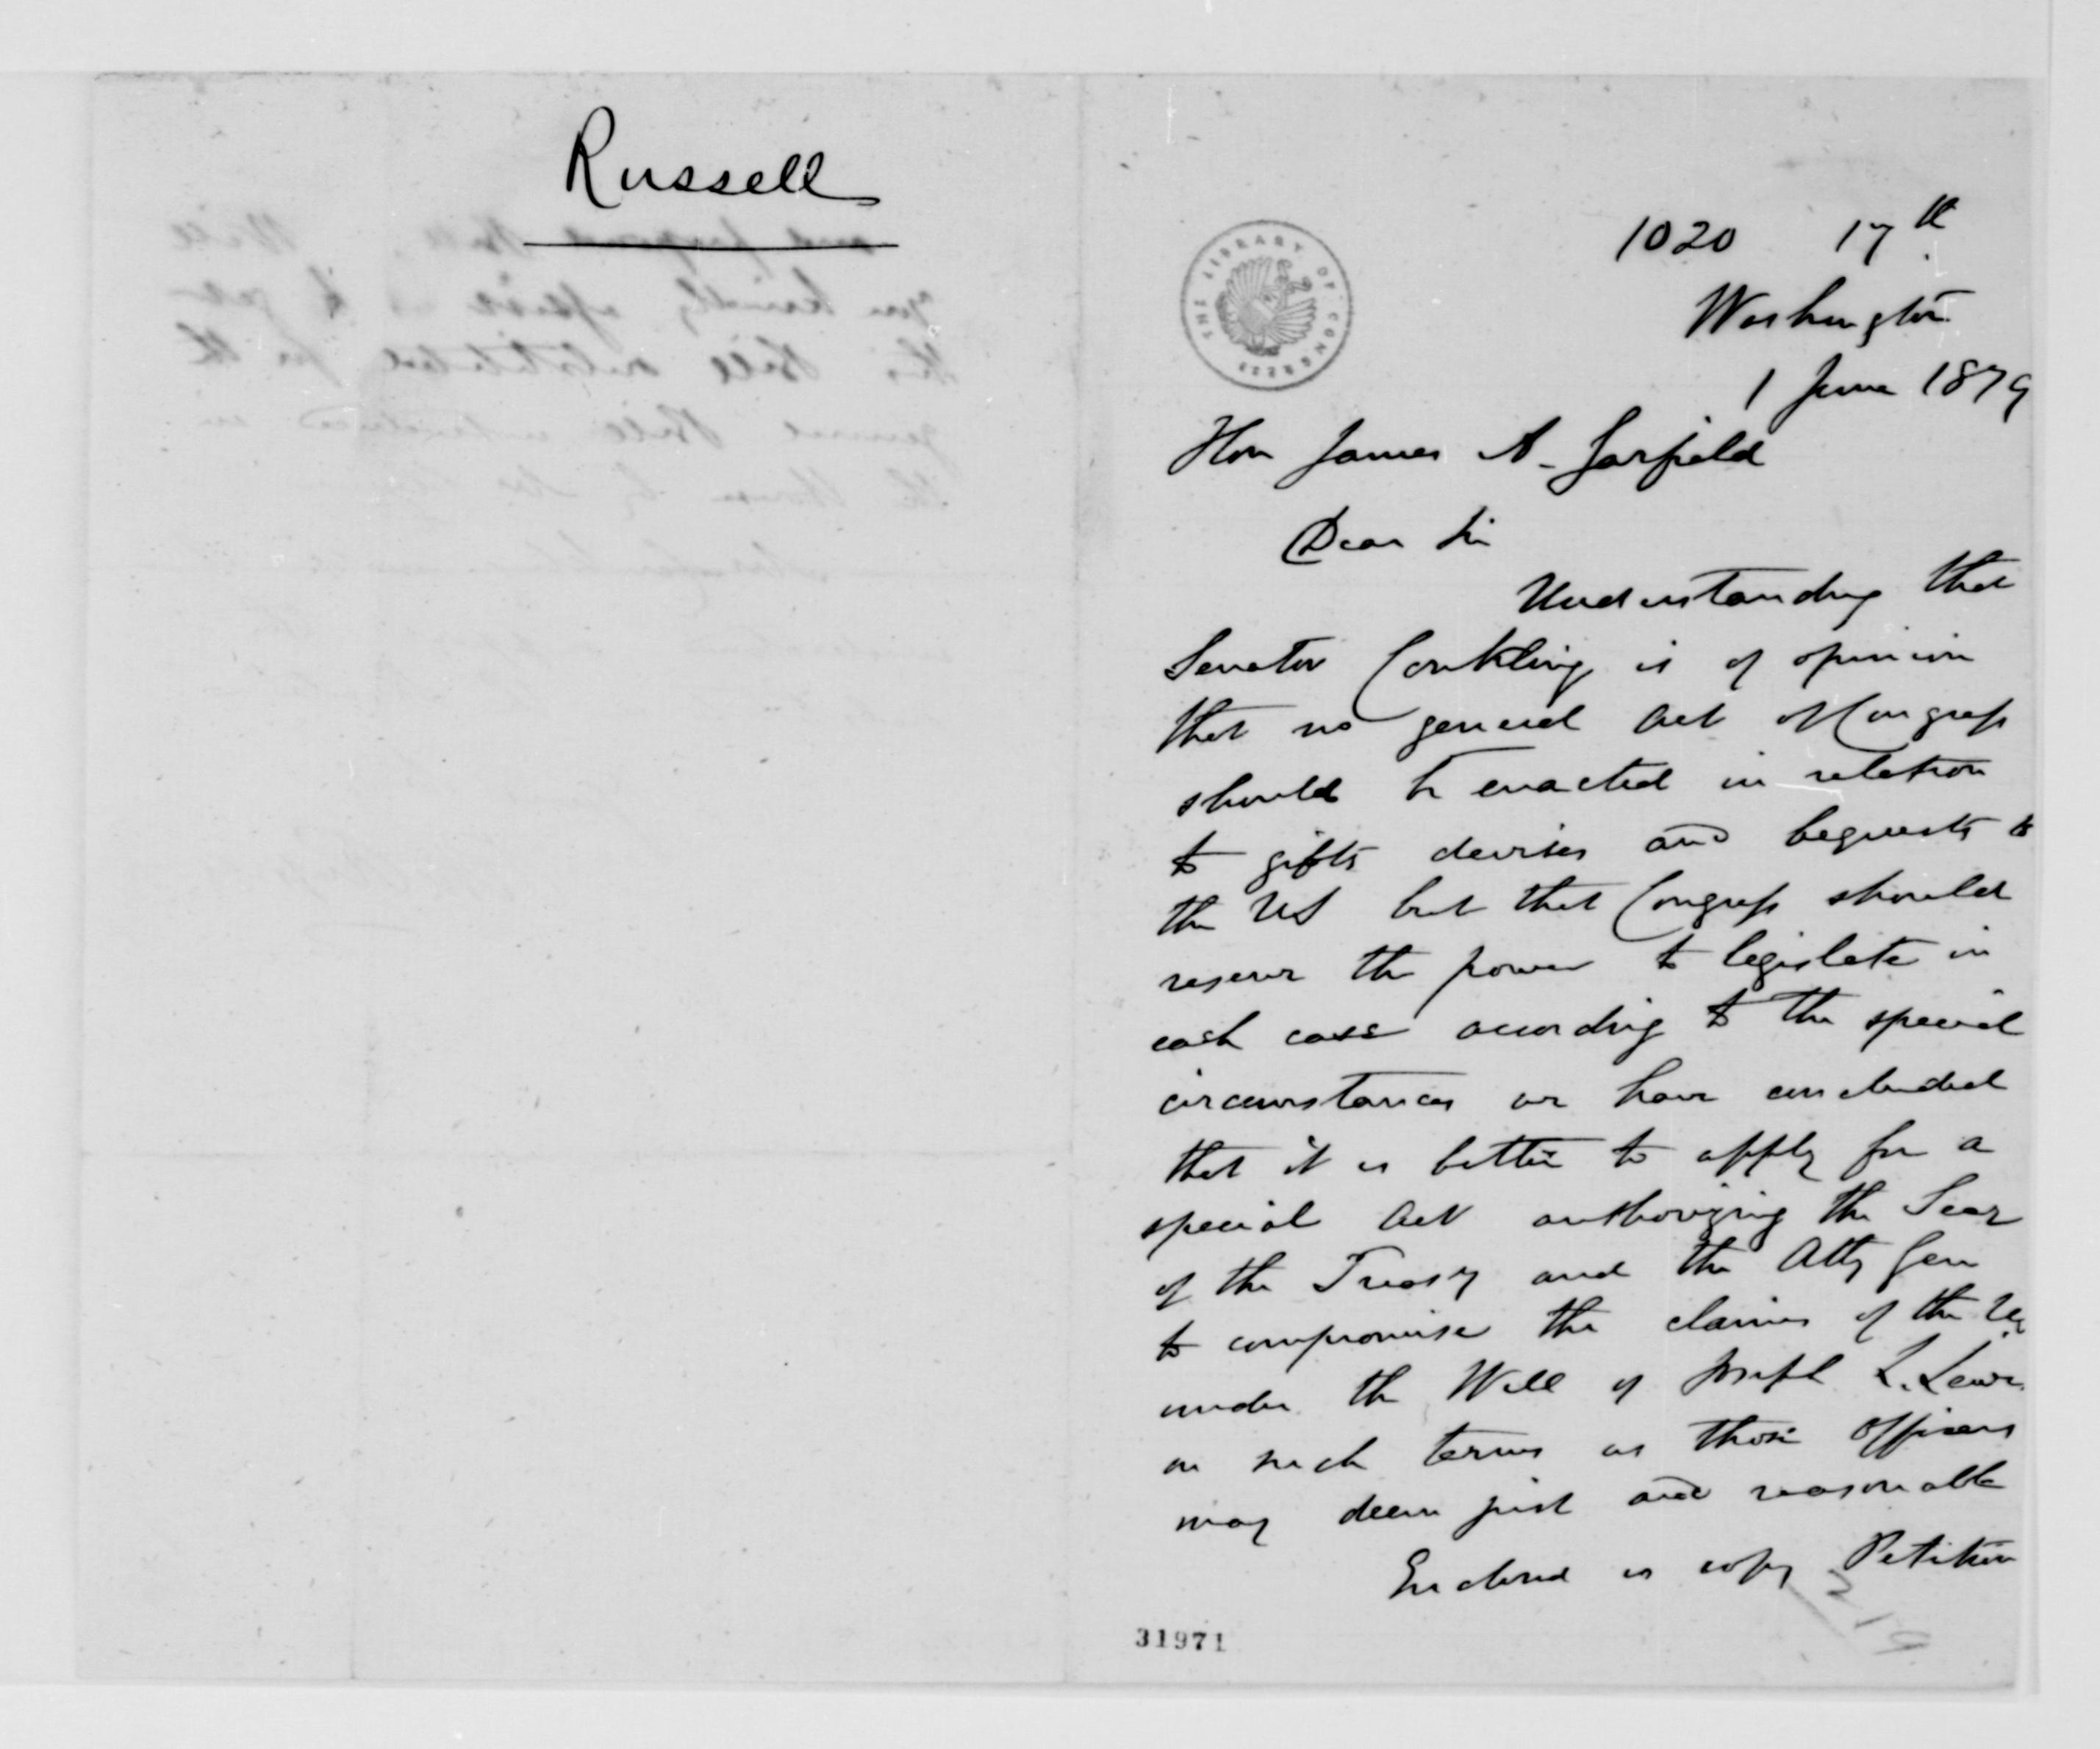 Russell
THE LIBRARY OF CONGRESS
1020 17th
Washington
1 June 1879
Hon James A. Garfield
Dear Sir
Understanding that
Senator Conkling is of opinion
that no general Act of Congress
should be enacted in relation
to gifts devises and bequests to
the US but that Congress should
reserve the power to legislate in
each case according to the special
circumstances we have concluded
that it is better to apply for a
special Act authorizing the Secy
of the Treasy and the Atty Gen
to compromise the claims of the US
under the Will of Joseph L. Lewis
on such terms as those officers
may deem just and reasonable
Enclosed is copy Petition
31971